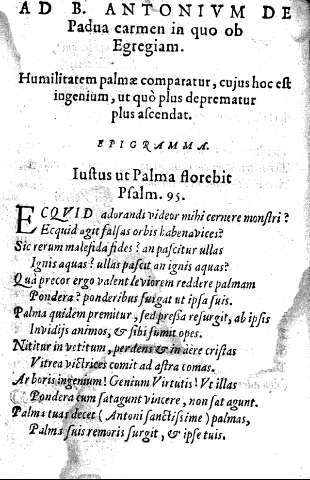 AD B. ANTONIVM DE
Padua carmen in quo ob
Egregiam.
Humilitatem palmæ comparatur, cujus hoc est
ingenium, ut quò plus deprematur
plus ascendat.
EPIGRAMMA.
Iustus ut Palma florebit
Psalm. 95.
ECQVID adorandi videor mihi cernere monstri?
Ecquid agit falsas orbis habenavices?
Sic rerum malefida fides? an pascitur ullas
Ignis aquas? ullas pascit an ignis aquas?
Quà precor ergo valent leviorem reddere palmam
Pondera? ponderibus suigat ut ipsa suis.
Palma quidem premitur, sed pressa resurgit, ab ipsis
Invidijs animos, & sibi sumit opes.
Nititur in vetitum, perdens & in aëre cristas
Vitrea victrices comit ad astra comas.
Arboris ingenium! Genium Virtutis! Vt illas
Pondera cum satagunt vincere, non sat agunt.
Palma tuas decet (Antoni sanctissime) palmas,
Palma suis remoris surgit, & ipse tuis.